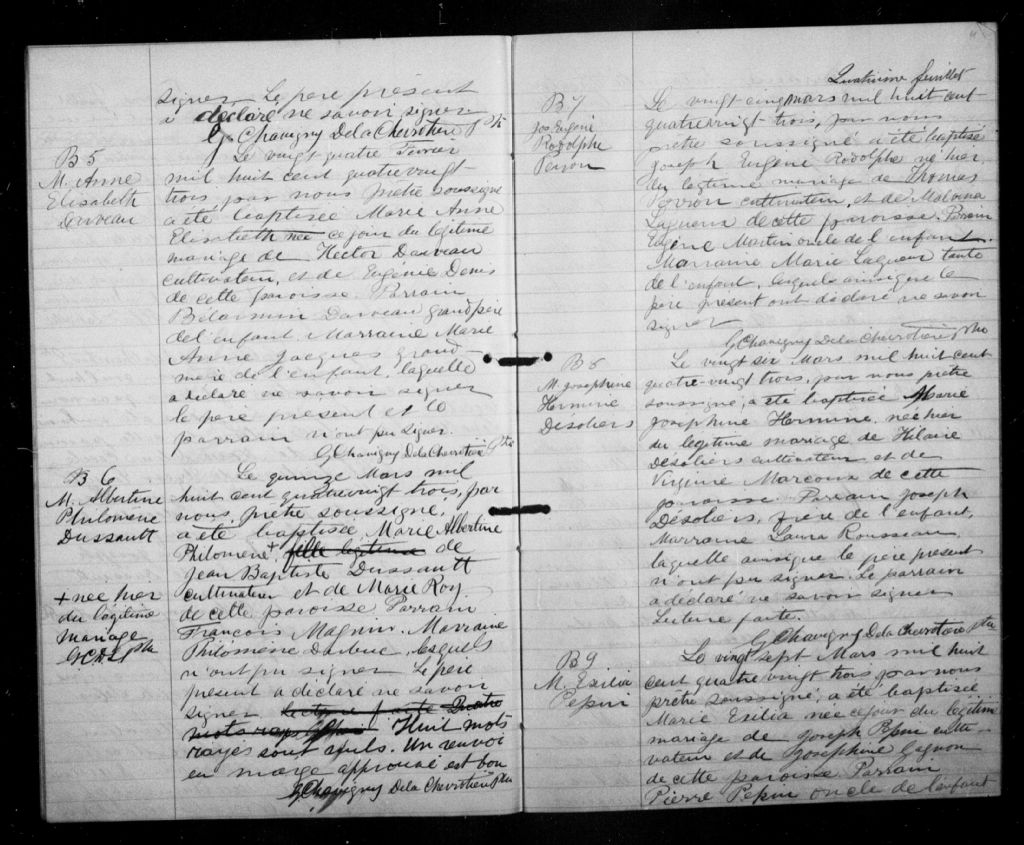 signer. Le père présent
a déclaré ne savoir signer.
G. Chavigny DelaChevrotière ptre
B 5
M. Anne
Elisabeth
Darveau
Le vingt quatre Fevrier
mil huit cent quatre vingt-
trois, par nous prêtre soussigné
a été baptisée Marie Anne
Elisabeth née ce jour du légitime
mariage de Hector Darveau
cultivateur, et de Eugénie Denis
de cette paroisse. Parrain
Bélarmin Darveau grand père
de l'enfant. Marraine Marie
Anne Jacques grand-
mère de l'enfant, laquelle
a déclaré ne savoir signer
le père présent et le
parrain n'ont pu signer.
G Chavigny DelaChevrotière Ptre
B 6
M. Albertine
Philomène
Dussault
+ née hier
du légitime
mariage
GCDLC ptre
Le quinze Mars mil
huit cent quatre vingt trois, par
nous, prêtre soussigné,
a été baptisée Marie Albertine
Philomène + fille légitime de
Jean Baptiste Dussault
cultivateur et de Marie Roy
de cette paroisse Parrain
François Magnin. Marraine
Philomène lesquels
n'ont pu signer. Le père
présent a déclaré ne savoir
signer Lecture faite Quatre
mots rayés Huit mots
rayés sont nuls. Un renvoi
en marge approuvé est bon
G Chavigny DelaChevrotière ptre
Quatrième feuillet
B 7
Jos Eugène
Rodolphe
Perron
Le vingt cinq mars mil huit cent
quatre vingt-trois, par nous
prêtre soussigné a été baptisé
Joseph Eugène Rodolphe né hier,
du légitime mariage de Thomas
Perron cultivateur, et de Malvina
Lagueux de cette paroisse. Parrain
Eugène Martin oncle de l'enfant.
Marraine Marie Lagueux tante
de l'enfant, laquelle ainsi que le
père présent ont déclaré ne savoir
signer
G Chavigny DelaChevrotière ptre
B 8
M. Josephine
Hermine
Désoliers
Le vingt six Mars mil huit cent
quatre-vingt trois, par nous prêtre
soussigné, a été baptisée Marie
Josephine Hermine, née hier
du légitime mariage de Hilaire
Désoliers cultivateur et de
Virginie Marcoux de cette
paroisse. Parrain Joseph
Désoliers, frère de l'enfant,
Marraine Laura Rousseau,
laquelle ainsique le père présent
n'ont pu signer. Le parrain
a déclaré ne savoir signer
Lecture faite.
G Chavigny DelaChevrotière ptre
B 9
M. Exilia
Pepin
Le vingt sept Mars mil huit
cent quatre vingt trois par nous
prêtre soussigné, a été baptisée
Marie Exilia née ce jour du légitime
mariage de Joseph Pepin culti-
vateur et de Josephine Gagnon
de cette paroisse Parrain
Pierre Pepin oncle de l'enfant